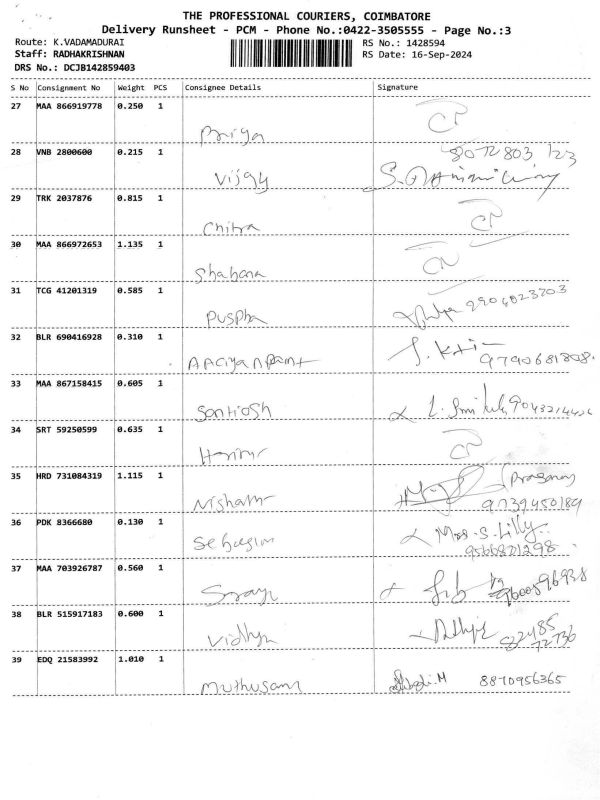 THE PROFESSIONAL COURIERS, COIMBATORE
Delivery Runsheet - PCM - Phone No.:0422-3505555 - Page No.:3
Route: K.VADAMADURAI RS No.: 1428594
Staff: RADHAKRISHNAN RS Date: 16-Sep-2024
DRS No.: DCJB142859403
S No Consignment No Weight PCS Consignee Details Signature
27 MAA 866919778 0.250 1
Priya
28 VNB 2800600 0.215 1 8072803123
Vijay S.
29 TRK 2037876 0.815 1
Chitra
30 MAA 866972653 1.135 1
Shabana
31 TCG 41201319 0.585 1
Puspha
32 BLR 690416928 0.310 1
9790681808
33 MAA 867158415 0.605 1
Santhosh
34 SRT 59250599 0.635 1
35 HRD 731084319 1.115 1 Prasanna
Nishanth 9739450189
36 PDK 8366680 0.130 1 Mrs.S.Lilly
9566871298
37 MAA 703926787 0.560 1
38 BLR 515917183 0.600 1
Vidhya
39 EDQ 21583992 1.010 1
Muthusami 8870956365